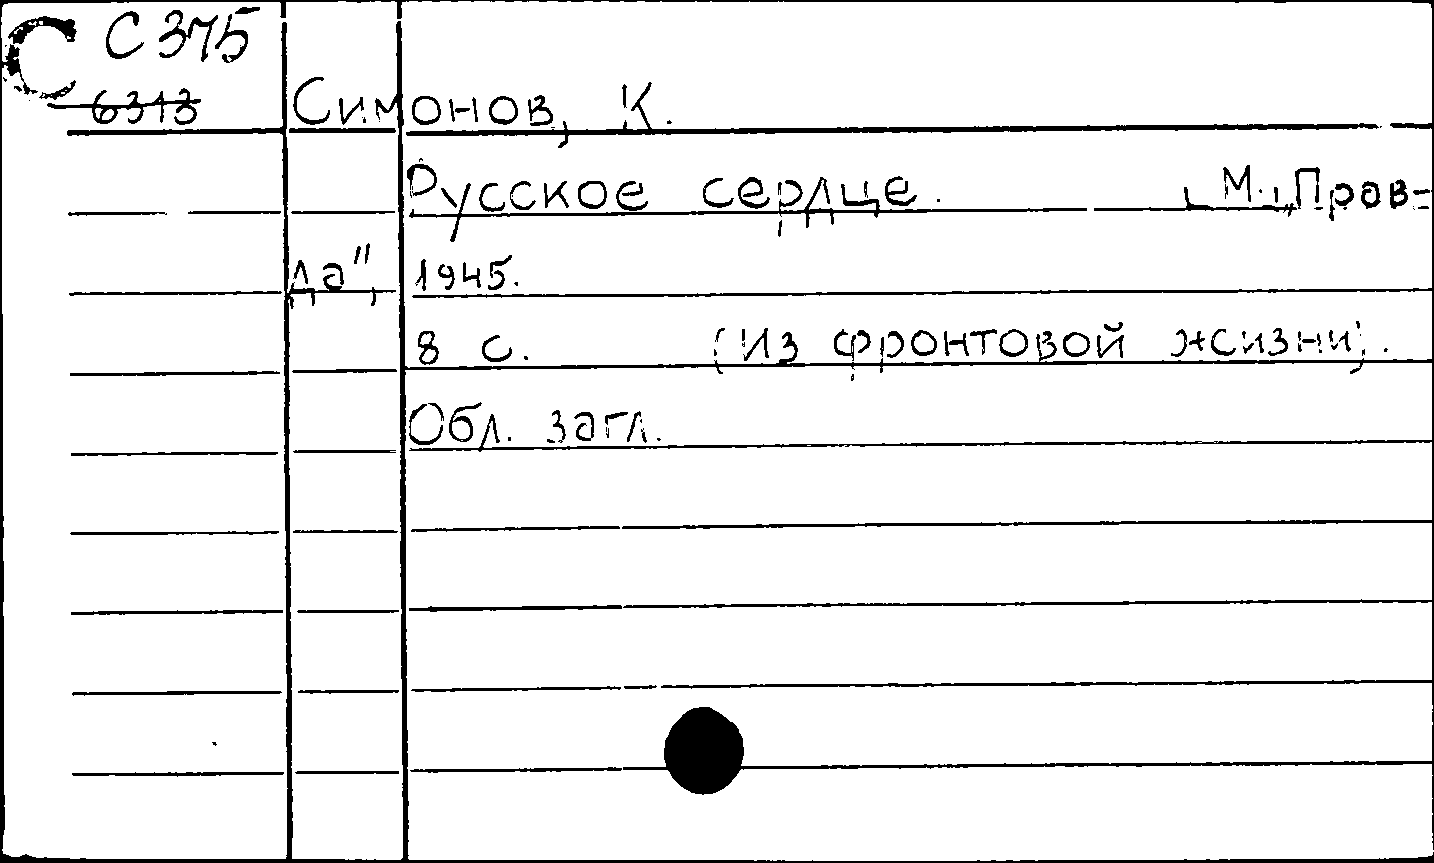 С С375
6313
Симонов, К.
Русское сердце. [М.,„Прав-
да", 1945.
8 с. (Из фронтовой жизни).
Обл. загл.